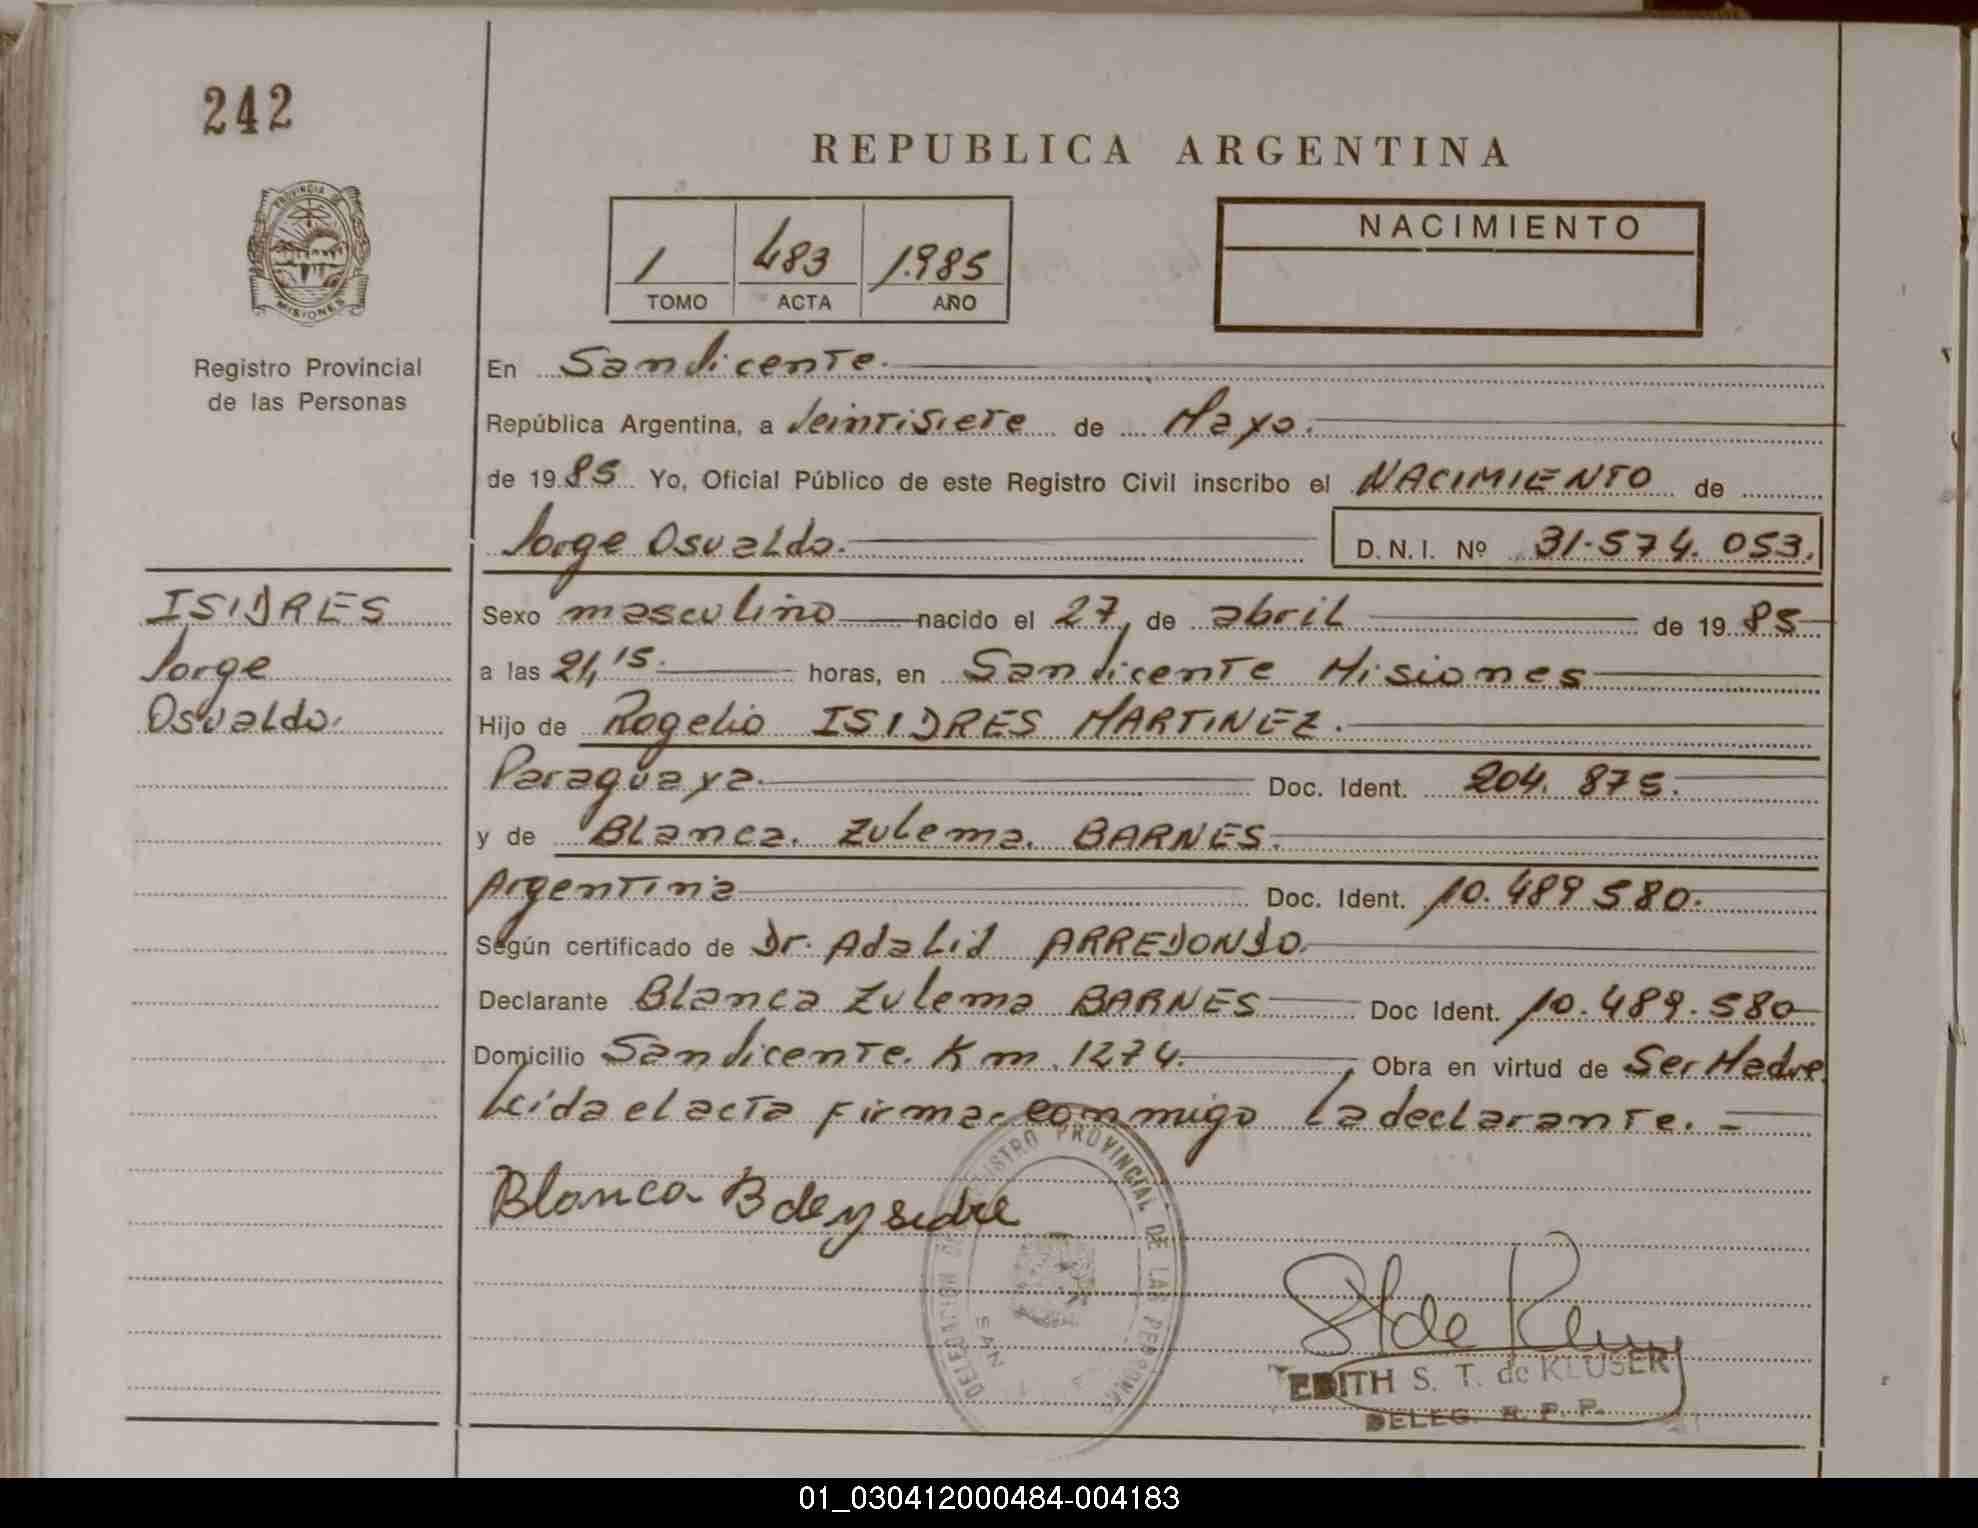 242
REPUBLICA ARGENTINA
PROVINCIA DE
MISIONES
1 483 1.985
TOMO ACTA AÑO
NACIMIENTO
Registro Provincial
de las Personas
En San Vicente.
República Argentina, a Veintisiete de Mayo.
de 1985 Yo, Oficial Público de este Registro Civil inscribo el NACIMIENTO de
Jorge Osvaldo. D.N.I. Nº 31.574.053.
ISIDRES
Jorge
Osvaldo.
Sexo masculino nacido el 27 de abril de 1985
a las 21,15. horas, en San Vicente Misiones
Hijo de Rogelio ISIDRES MARTINEZ.
Paraguaya. Doc. Ident. 204.875.
y de Blanca. Zulema. BARNES.
Argentina Doc. Ident. 10.489580.
Según certificado de Dr. Adalid ARREDONDO.
Declarante Blanca Zulema BARNES Doc Ident. 10.489.580
Domicilio San Vicente. Km. 1274. Obra en virtud de Ser Madre.
Leída el acta firma conmigo la declarante. =
Blanca B de ysidre
DELEGACION DE REGISTRO PROVINCIAL DE LAS PERSONAS
SAN
EDITH S. T. de KLUSER
DELEG. R. P. P.
01_030412000484-004183